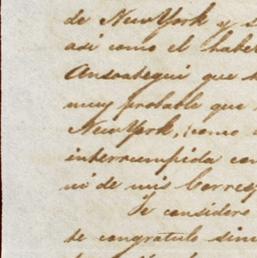 de New York y s
asi como el haber
Ansoategui que h
muy probable que
New York, como
interrumpida con
ni de mis Corres
Te considero
te congratulo sin